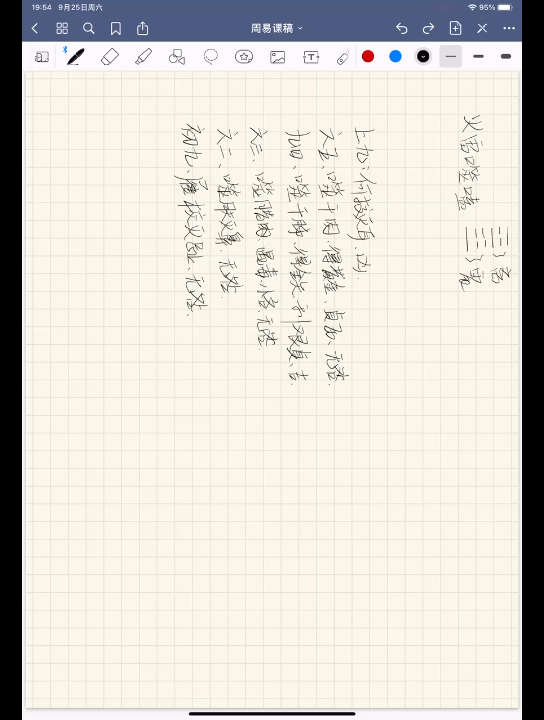 19:54 9月25日周六
95%
周易课稿
火雷噬嗑
上九、何校灭耳、凶.
六五、噬干肉.得黄金.贞厉、无咎.
九四、噬干胏.得金矢.利艰贞、吉.
六三、噬腊肉.遇毒.小吝.无咎.
六二、噬肤灭鼻.无咎.
初九、屦校灭趾、无咎.